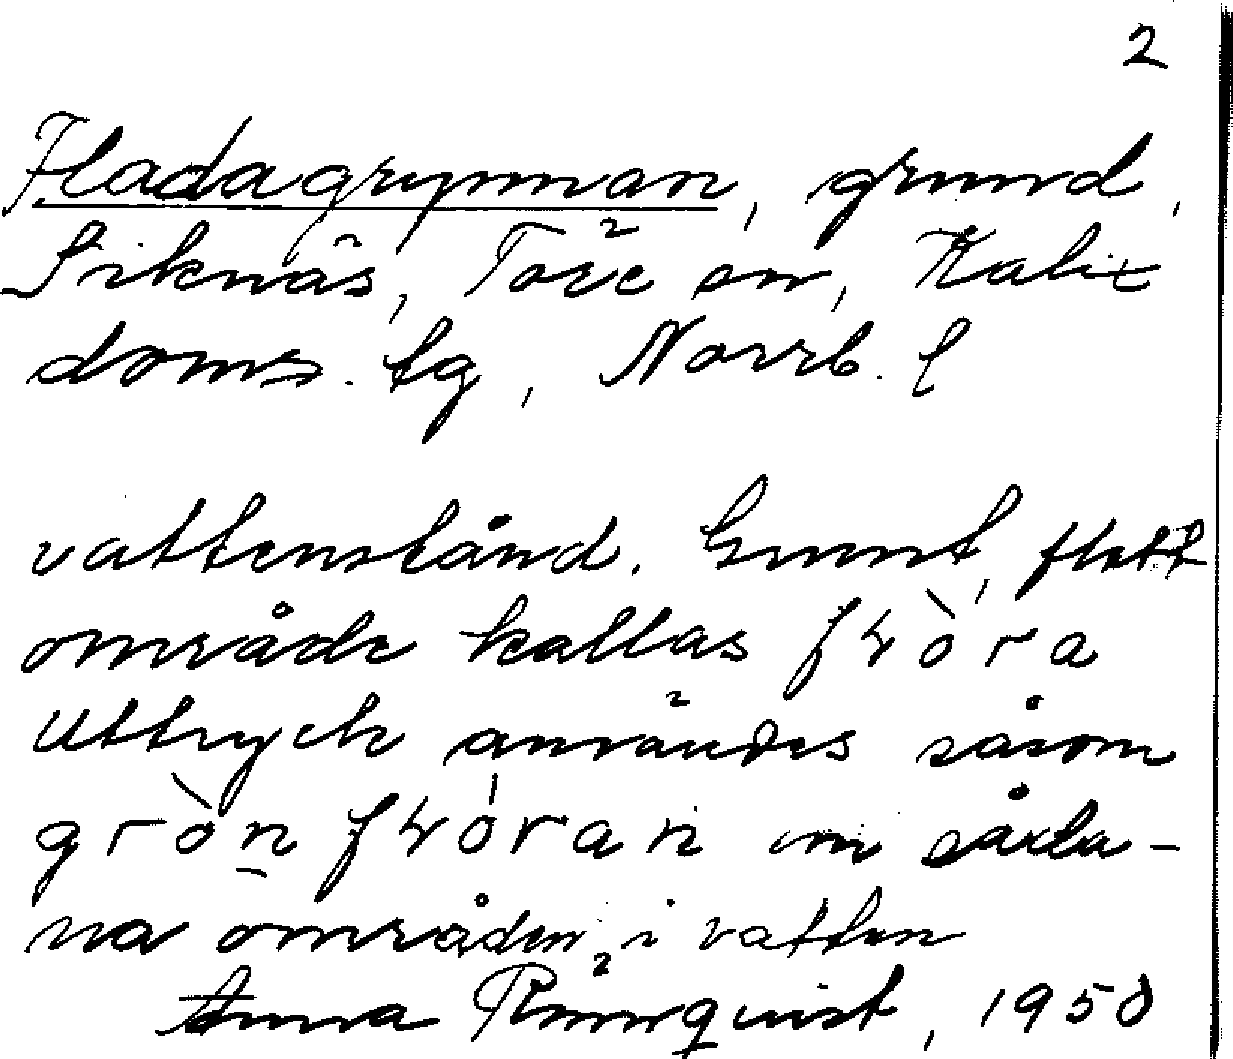 2
Fladagrynnan, grund,
Siknäs, Töre sn, Kalix
doms. tg, Norrb. l
vattenstånd. Grunt, flatt
område kallas
Uttryck användes såsom
om såda-
na områden i vatten
Anna Rönnquist, 1950